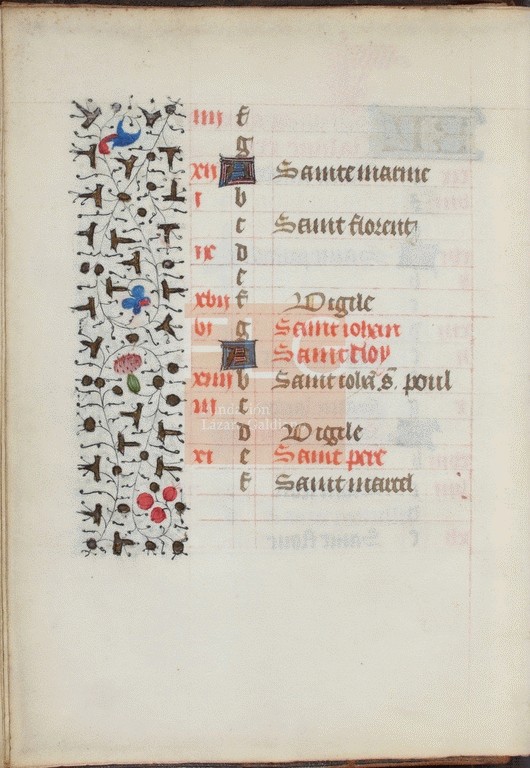 iiii f
g
xii A Sainte marine
i b
c Saint florentz
ix d
e
xvii f Vigile
vi g Saint iohan
A Saint eloy
xiiii b Saint ioha̅ s̅. poul
iii c
d Vigile
xi e Saint pere
f Saint marcel
Fundación
Lázaro Galdiano